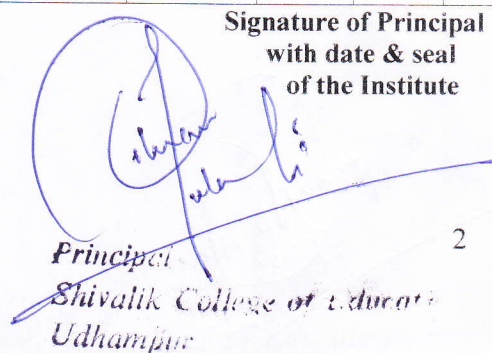 Signature of Principal
with date & seal
of the Institute
2
Principal
Shivalik College of Educati
Udhampur